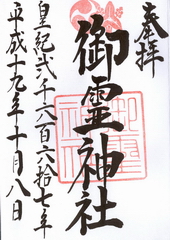 奉拝
御霊神社
皇紀弐千六百六拾七年
平成十九年十月八日